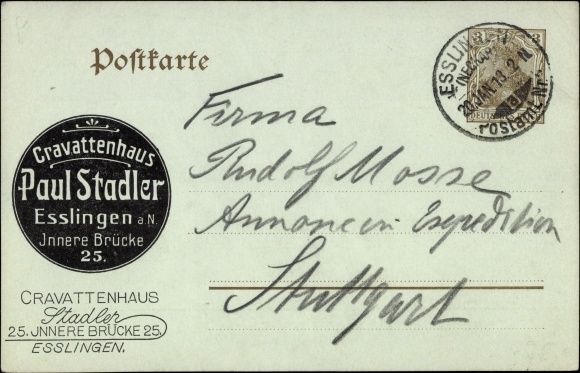 Postkarte
3 3
DEUTSCHES
ESSLINGEN
(NECKAR)
20 JAN. 13 2 N.
Postamt Nr.
Cravattenhaus
Paul Stadler
Esslingen a.N.
Jnnere Brücke
25.
Firma
Rudolf Mosse
Annoncen Expedition
Stuttgart
CRAVATTENHAUS
Stadler
25. JNNERE BRÜCKE 25.
ESSLINGEN.